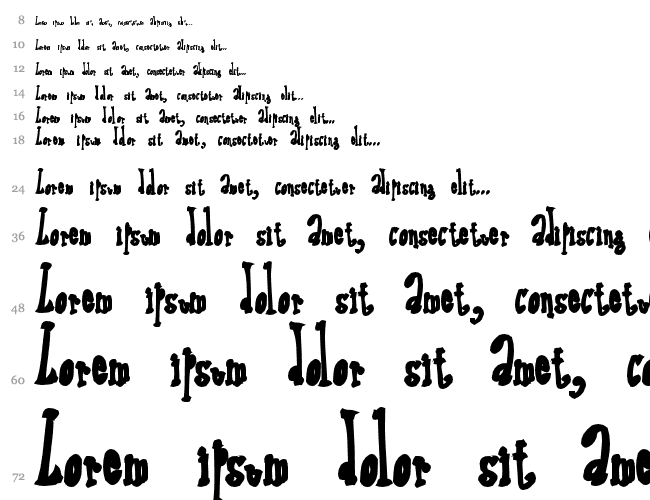 8 Lorem ipsum dolor sit amet, consectetuer adipiscing elit...
10 Lorem ipsum dolor sit amet, consectetuer adipiscing elit...
12 Lorem ipsum dolor sit amet, consectetuer adipiscing elit...
14 Lorem ipsum dolor sit amet, consectetuer adipiscing elit...
16 Lorem ipsum dolor sit amet, consectetuer adipiscing elit...
18 Lorem ipsum dolor sit amet, consectetuer adipiscing elit...
24 Lorem ipsum dolor sit amet, consectetuer adipiscing elit...
36 Lorem ipsum dolor sit amet, consectetuer adipiscing
48 Lorem ipsum dolor sit amet, consectetu
60 Lorem ipsum dolor sit amet, co
72 Lorem ipsum dolor sit ame